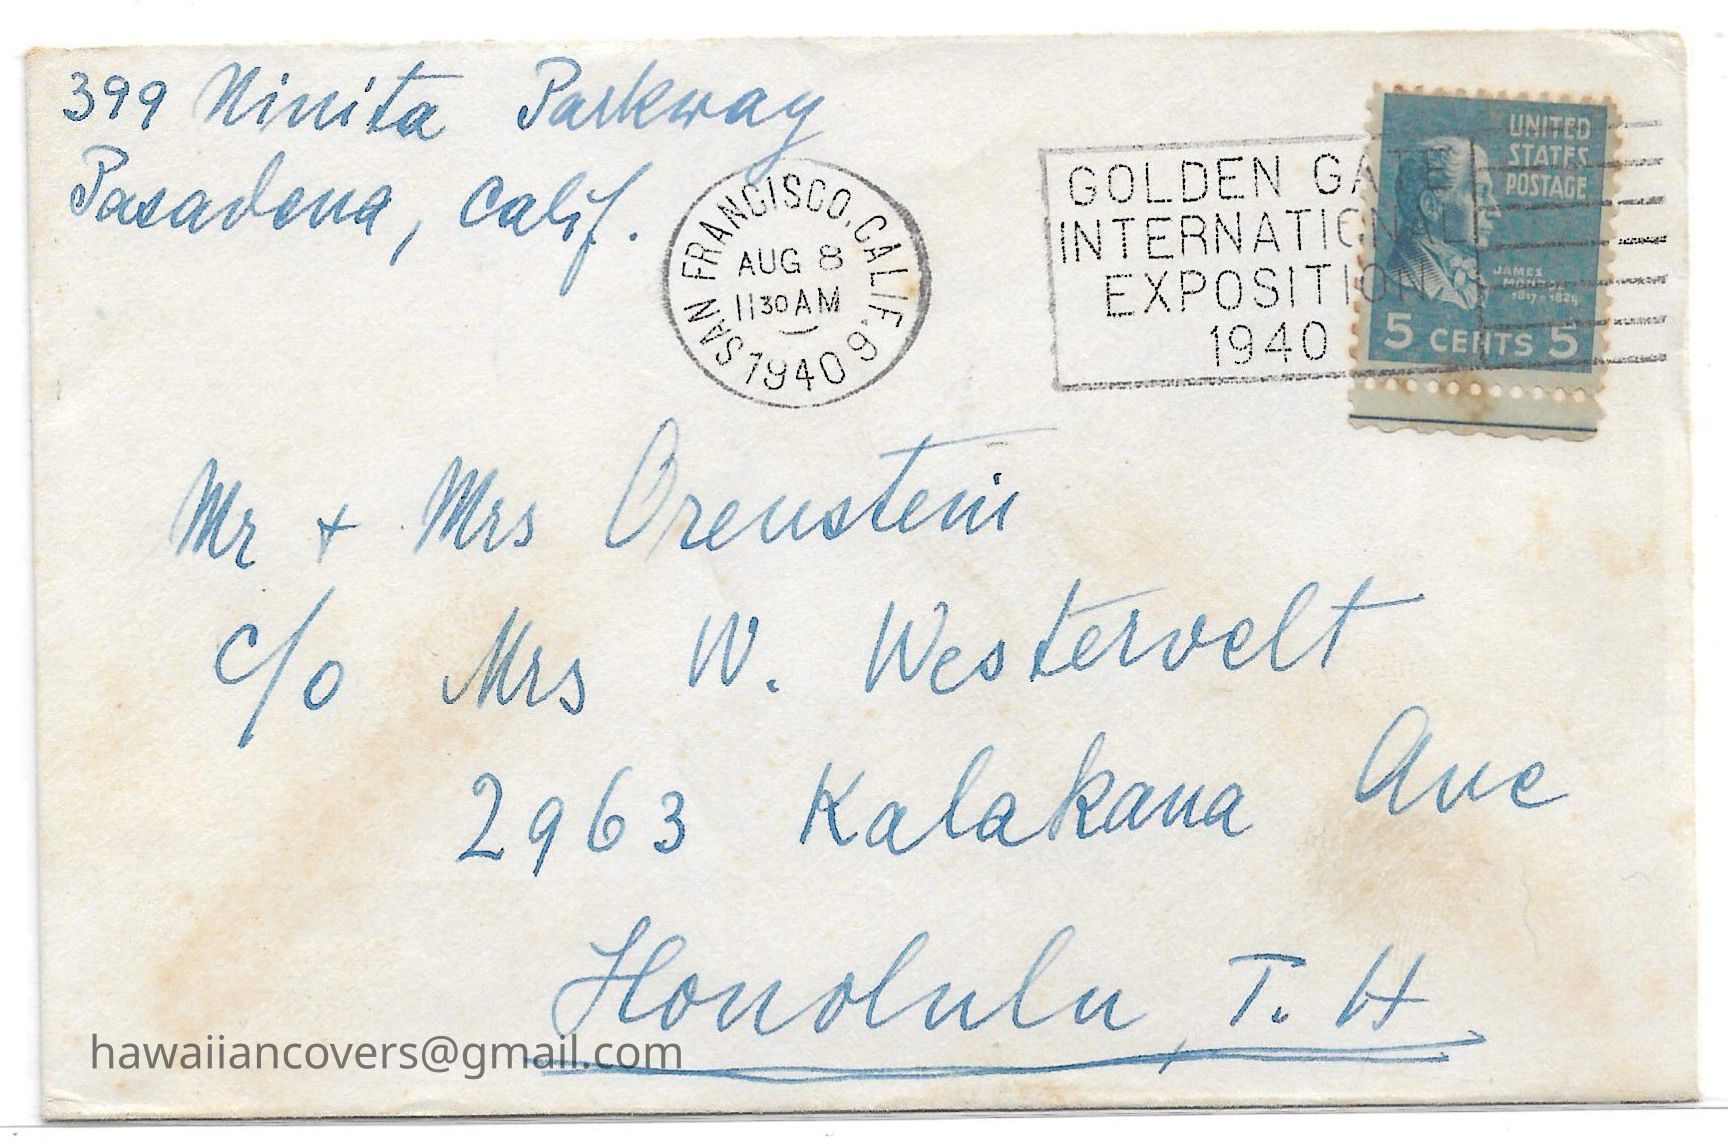 399 Ninita Parkway
Pasadena, Calif.
SAN FRANCISCO, CALIF. 9
AUG 8
1130 AM
1940
GOLDEN GATE
INTERNATIONAL
EXPOSITION
1940
UNITED
STATES
POSTAGE
JAMES
MONROE
1817-1825
5 CENTS 5
Mr + Mrs Orenstein
c/o Mrs W. Westervelt
2963 Kalakaua Ave
Honolulu, T. H
hawaiiancovers@gmail.com